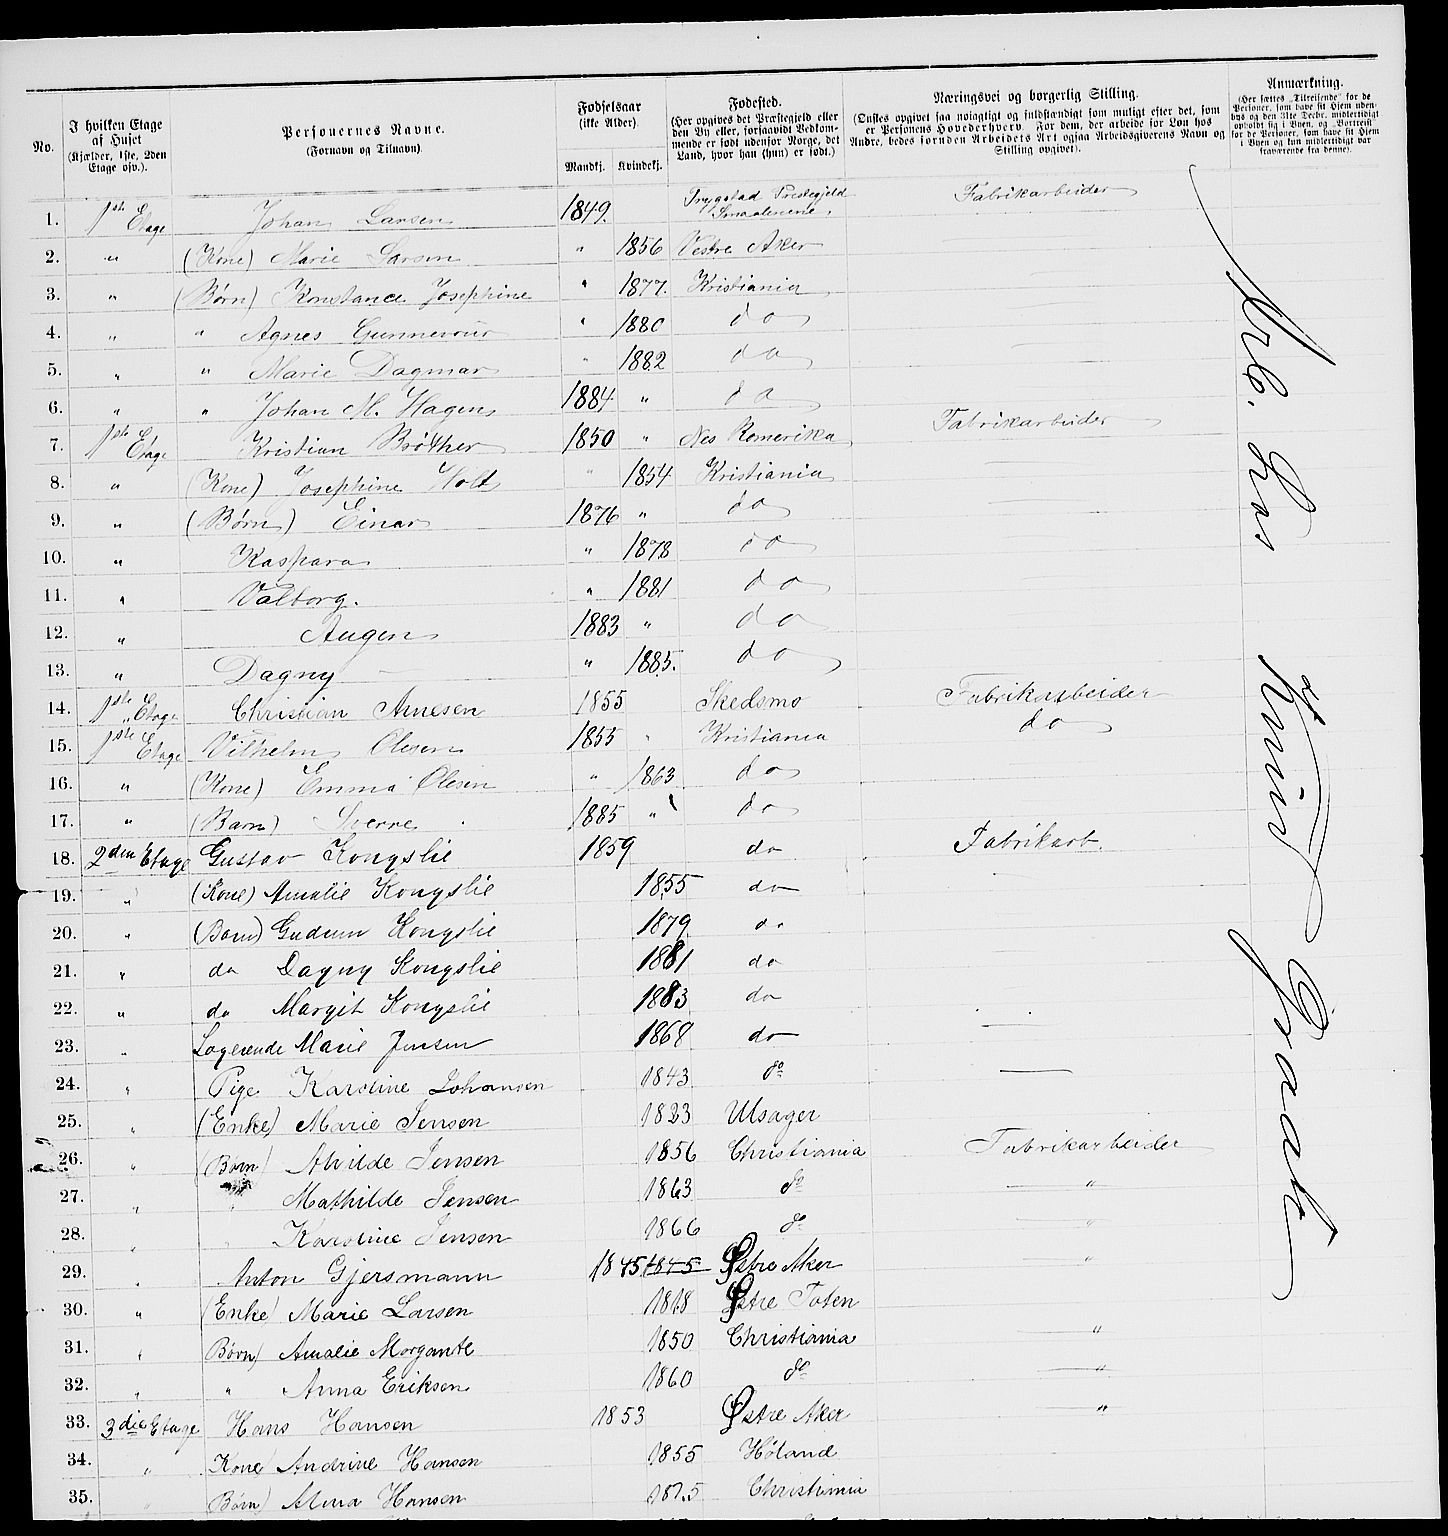 No.
I hvilken Etage af Huset (Kjælder, 1ste, 2den Etage osv.).
Personernes Navne. (Fornavn og Tilnavn)
Fødselsaar (ikke Alder). Mandkj. Kvindekj.
Fødested. (Her opgives det Præstegjeld eller den By eller, forsaavidt Vedkommende er født udenfor Norge, det Land, hvor han (hun) er født.)
Næringsvei og borgerlig Stilling. (Ønskes opgivet saa nøiagtigt og fuldstændigt som muligt efter det, som er Personens Hovederhverv. For dem, der arbeide for Løn hos Andre, bedes foruden Arbeidets Art ogsaa Arbeidsgiverens Navn og Stilling opgivet).
Anmærkning. (Her sættes „Tilreisende" for de Personer, som have sit Hjem udenbys og den 31te Decbr. midlertidigt opholdt sig i Byen, og „Bortreist" for de Personer, som have sit Hjem i Byen og kun midlertidigt var fraværende fra denne).
1. 1ste Etage Johan Larsen 1849. Trygstad Prestegjeld Smaalenene, Fabrikarbeider
2. " (Kone) Marie Larsen " 1856 Vestre Aker
3. " (Børn) Konstance Josephine " 1877. Kristiania
4. " " Agnes " 1880 do
5. " " Marie Dagmar " 1882 do
6. " " Johan M. Hagen 1884 " do
7. 1ste Etage Kristian Brøther 1850 " Nes Romerike Fabrikarbeider
8. " (Kone) Josephine Holt " 1854 Kristiania
9. " (Børn) Einar 1876 " do
10. " Kaspara " 1878 do
11. " Valborg. " 1881 do
12. " Augen 1883 " do
13. " Dagny " 1885. do
14. 1ste Etage Christian Arnesen 1855 Skedsmo Fabrikarbeider
15. 1ste Etage Vilhelm Olesen 1855 " Kristiania do
16. " (Kone) Emma Olesen " 1863 do
17. " (Barn) Sverre 1885 " do
18. 2den Etage Gustav Kongslie 1859 do Fabrikarb.
19. " (Kone) Amalie Kongslie 1855 do
20. " (Barn) Gudrun Kongslie 1879 do
21. " do Dagny Kongslie 1881 do
22. " do Margit Kongslie 1883 do
23. " Logerende Marie Jensen 1868 do
24. " Pige Karoline Johansen 1843 do
25. " (Enke) Marie Jensen 1823 Ulsager
26. " (Børn) Alvilde Jensen 1856 Christiania Fabrikarbeider
27. " " Mathilde Jensen 1863 do "
28. " " Karoline Jensen 1866 do "
29. " Anton Gjersmann 1845 1845 Østre Aker "
30. " (Enke) Marie Larsen 1818 Østre Toten
31. " Børn) Amalie Morgante 1850 Christiania "
32. " " Anna Eriksen 1860 do "
33. 3die Etage Hans Hansen 1853 Østre Aker "
34. " Kone) Andrine Hansen 1855 Høland
35. " Børn) Alma Hansen 1875 Christiania
Arb. hos Knud Graah